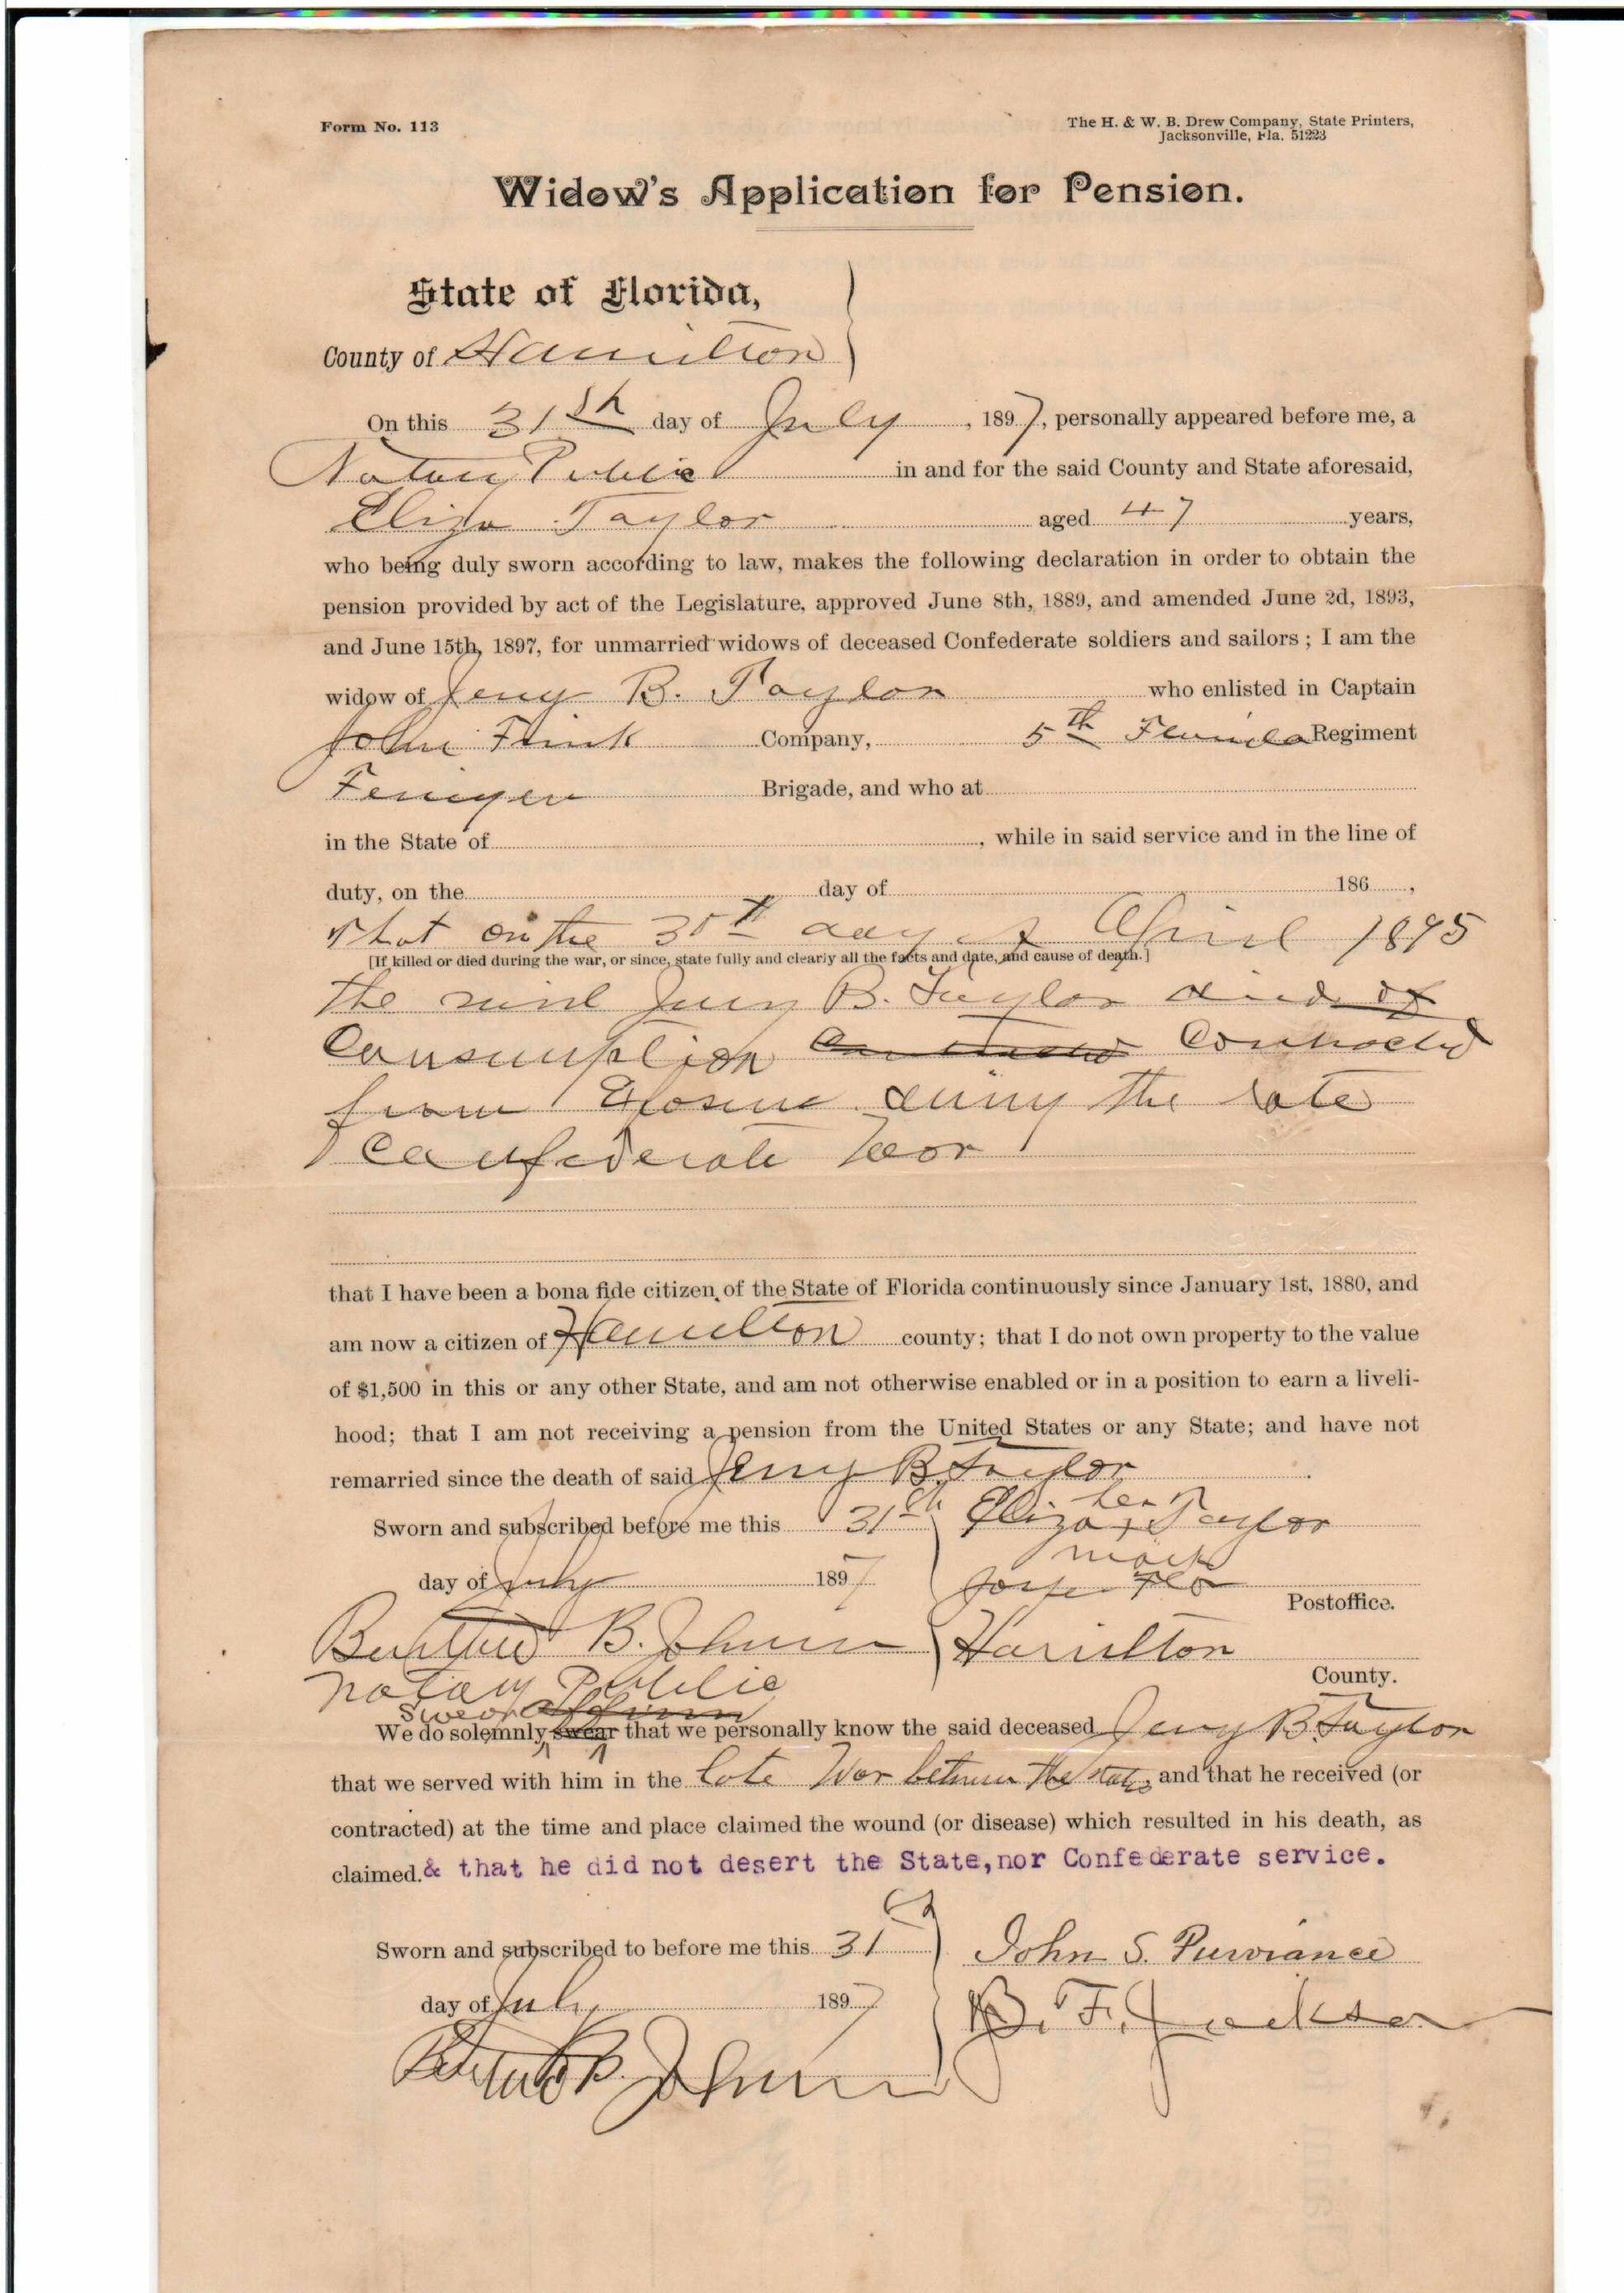 Form No. 113
The H. & W. B. Drew Company, State Printers,
Jacksonville, Fla. 51223
Widow's Application for Pension.
State of Florida,
County of Hamilton
On this 31th day of July, 1897, personally appeared before me, a
Notary Public in and for the said County and State aforesaid,
Eliza Taylor aged 47 years,
who being duly sworn according to law, makes the following declaration in order to obtain the
pension provided by act of the Legislature, approved June 8th, 1889, and amended June 2d, 1893,
and June 15th, 1897, for unmarried widows of deceased Confederate soldiers and sailors; I am the
widow of Jerry B. Taylor who enlisted in Captain
John Frink Company, 5th Florida Regiment
Brigade, and who at
in the State of , while in said service and in the line of
duty, on the day of 186 ,
that on the 30th day of April 1895
[If killed or died during the war, or since, state fully and clearly all the facts and date, and cause of death.]
the said Jerry B. Taylor died of
Consumption Contracted
from Exposure during the late
Confederate War
that I have been a bona fide citizen of the State of Florida continuously since January 1st, 1880, and
am now a citizen of Hamilton county; that I do not own property to the value
of $1,500 in this or any other State, and am not otherwise enabled or in a position to earn a liveli-
hood; that I am not receiving a pension from the United States or any State; and have not
remarried since the death of said Jerry B. Taylor
Sworn and subscribed before me this 31th Eliza her x mark Taylor
day of July 1897 Jasper Fla Postoffice.
B. Johnson Hamilton County.
Notary Public
swear affirm
We do solemnly swear that we personally know the said deceased Jerry B. Taylor
that we served with him in the late War between the states, and that he received (or
contracted) at the time and place claimed the wound (or disease) which resulted in his death, as
claimed. & that he did not desert the State, nor Confederate service.
Sworn and subscribed to before me this 31 John S. Purviance
day of July 1897 B. F. Jackson
B. Johnson